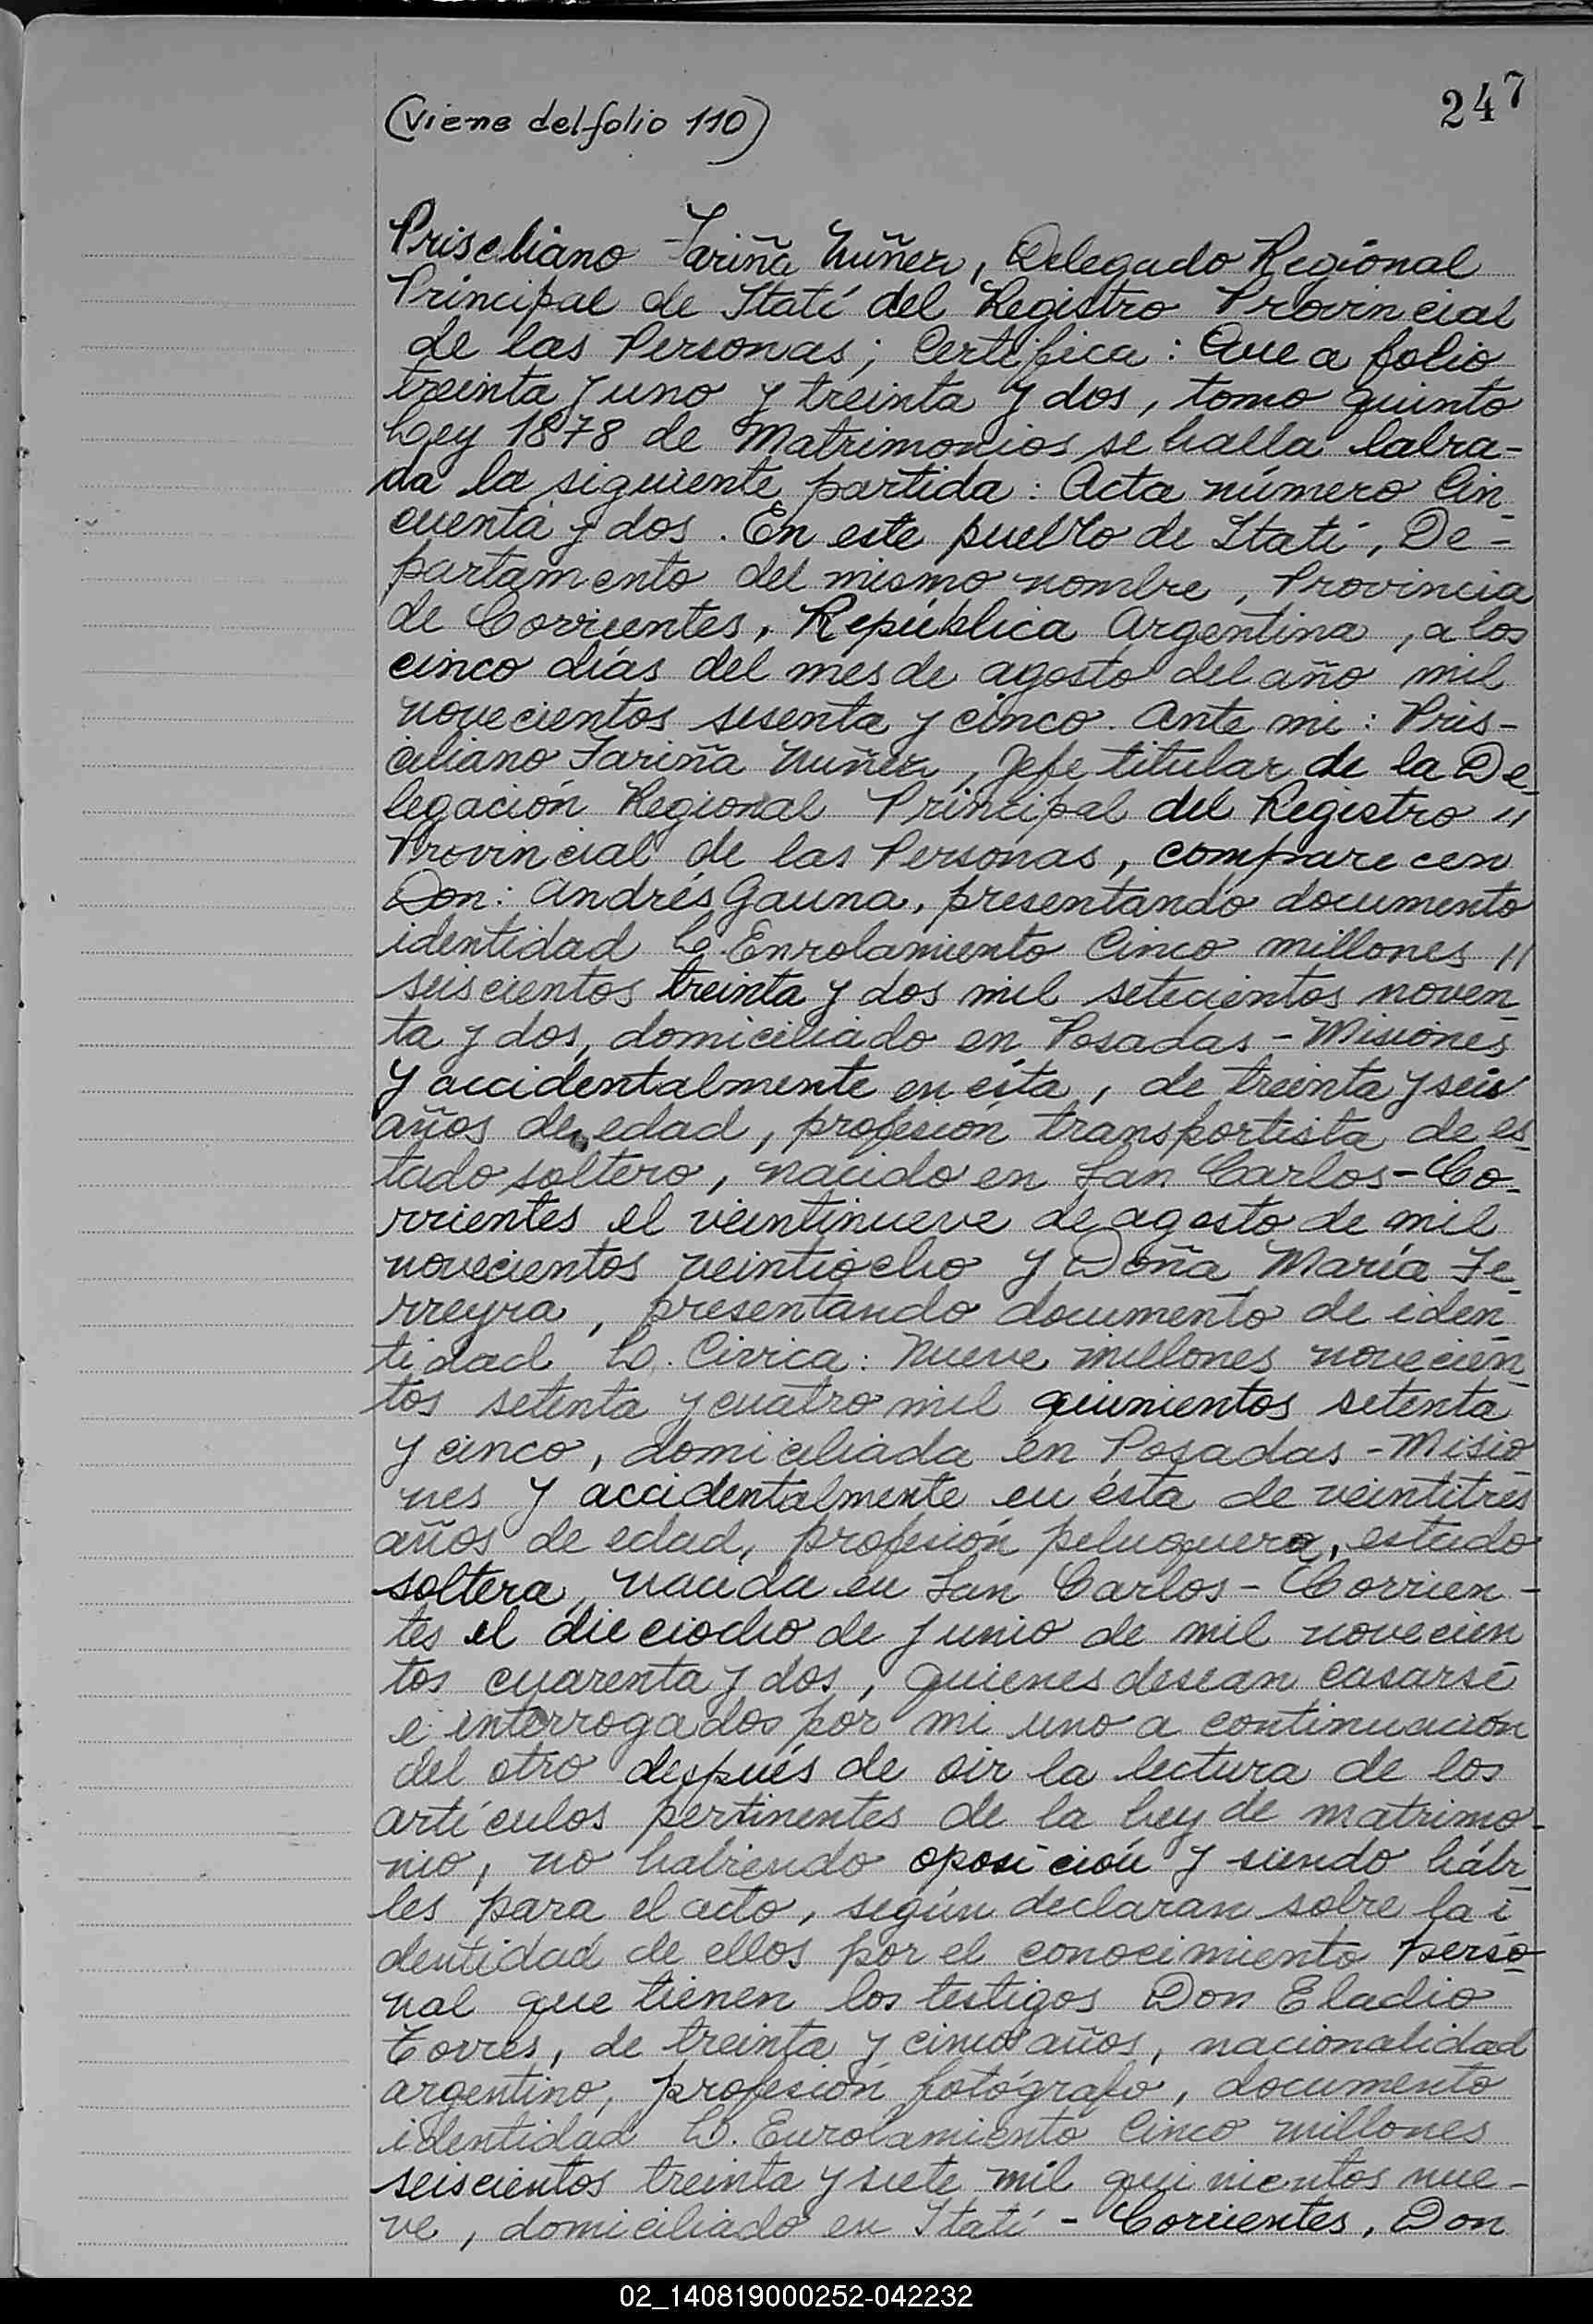 (Viene del folio 110)
247
Prisciliano Fariña Núñez, Delegado Regional
Principal de Itatí del Registro Provincial
de las Personas; Certifica: Que a folio
treinta y uno y treinta y dos, tomo quinto
Ley 1878 de Matrimonios se halla labra-
da la siguiente partida: Acta número Cin
cuenta y dos. En este pueblo de Itatí, De-
partamento del mismo nombre, Provincia
de Corrientes, República Argentina, a los
cinco días del mes de agosto del año mil
novecientos sesenta y cinco. Ante mi: Pris-
ciliano Fariña Nuñez, Jefe titular de la De-
legación Regional Principal del Registro "
Provincial de las Personas, comparecen
Don: Andrés Gauna, presentando documento
identidad L. Enrolamiento Cinco millones "
seiscientos treinta y dos mil setecientos noven-
ta y dos, domiciliado en Posadas - Misiones
y accidentalmente en ésta, de treinta y seis
años de edad, profesión transportista de es-
tado soltero, nacido en San Carlos - Co-
rrientes el veintinueve de agosto de mil
novecientos veintiocho y Doña María Fe-
rreyra, presentando documento de iden-
tidad L. Cívica: Nueve millones novecien-
tos setenta y cuatro mil quinientos setenta
y cinco, domiciliada en Posadas - Misio-
nes y accidentalmente en ésta de veintitrés
años de edad, profesión peluquera, estado
soltera, nacida en San Carlos - Corrien-
tes el dieciocho de junio de mil novecien
tos cuarenta y dos, quienes desean casarse
e interrogados por mi uno a continuación
del otro después de oir la lectura de los
artículos pertinentes de la ley de matrimo-
nio, no habiendo oposición y siendo hábi-
les para el acto, según declaran sobre la i-
dentidad de ellos por el conocimiento perso-
nal que tienen los testigos Don Eladio
Torres, de treinta y cinco años, nacionalidad
argentino, profesión fotógrafo, documento
identidad L. Enrolamiento Cinco millones
seiscientos treinta y siete mil quinientos nue-
ve, domiciliado en Itatí - Corrientes, Don
02_140819000252-042232